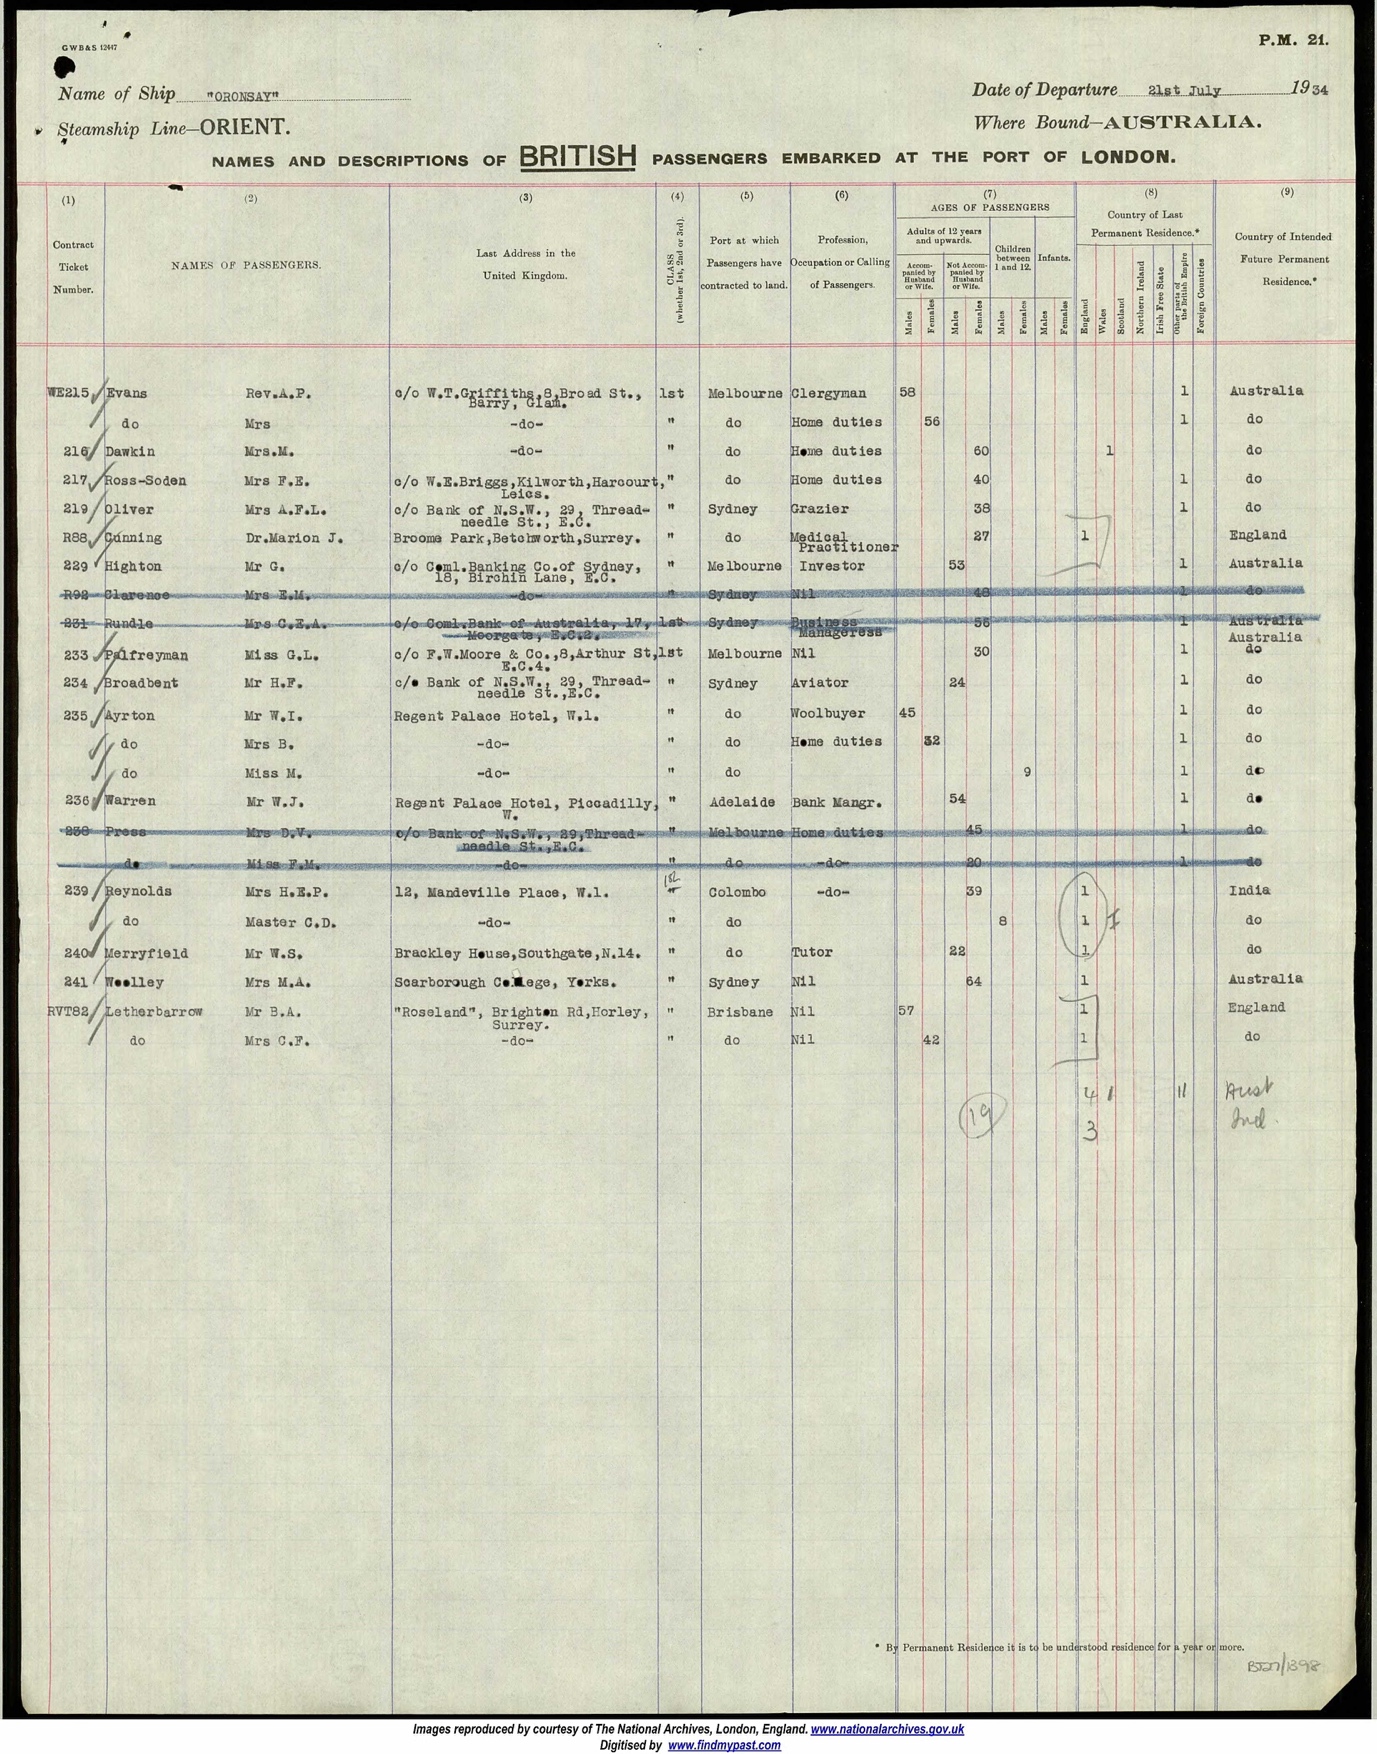 GWB&S 12447
P.M. 21.
Name of Ship "ORONSAY" Date of Departure 21st July 1934
Steamship Line—ORIENT. Where Bound—AUSTRALIA.
NAMES AND DESCRIPTIONS OF BRITISH PASSENGERS EMBARKED AT THE PORT OF LONDON.
(1) (2) (3) (4) (5) (6) (7) (8) (9)
Contract Ticket Number.
NAMES OF PASSENGERS.
Last Address in the United Kingdom.
CLASS (whether 1st, 2nd or 3rd).
Port at which Passengers have contracted to land.
Profession, Occupation or Calling of Passengers.
AGES OF PASSENGERS
Adults of 12 years and upwards.
Accompanied by Husband or Wife.
Not Accompanied by Husband or Wife.
Children between 1 and 12.
Infants.
Males Females Males Females Males Females Males Females
Country of Last Permanent Residence.*
England Wales Scotland Northern Ireland Irish Free State Other parts of the British Empire Foreign Countries
Country of Intended Future Permanent Residence.*
WE215 Evans Rev.A.P. c/o W.T.Griffiths,8,Broad St., 1st Melbourne Clergyman 58 1 Australia
Barry, Glam.
do Mrs -do- " do Home duties 56 1 do
216 Dawkin Mrs.M. -do- " do Home duties 60 1 do
217 Ross-Soden Mrs F.E. c/o W.E.Briggs,Kilworth,Harcourt, " do Home duties 40 1 do
Leics.
219 Oliver Mrs A.F.L. c/o Bank of N.S.W., 29, Thread- " Sydney Grazier 38 1 do
needle St., E.C.
R88 Gunning Dr.Marion J. Broome Park,Betchworth,Surrey. " do Medical 27 1 England
Practitioner
229 Highton Mr G. c/o Coml.Banking Co.of Sydney, " Melbourne Investor 53 1 Australia
18, Birchin Lane, E.C.
R92 Clarence Mrs E.M. -do- " Sydney Nil 48 1 do
231 Rundle Mrs C.E.A. c/o Coml.Bank of Australia, 17, 1st Sydney Business 56 1 Australia
Moorgate, E.C.2. Manageress Australia
233 Palfreyman Miss G.L. c/o F.W.Moore & Co.,8,Arthur St, 1st Melbourne Nil 30 1 do
E.C.4.
234 Broadbent Mr H.F. c/o Bank of N.S.W., 29, Thread- " Sydney Aviator 24 1 do
needle St.,E.C.
235 Ayrton Mr W.I. Regent Palace Hotel, W.1. " do Woolbuyer 45 1 do
do Mrs B. -do- " do Home duties 32 1 do
do Miss M. -do- " do 9 1 do
236 Warren Mr W.J. Regent Palace Hotel, Piccadilly, " Adelaide Bank Mangr. 54 1 do
W.
238 Press Mrs D.V. c/o Bank of N.S.W., 29,Thread- " Melbourne Home duties 45 1 do
needle St.,E.C.
do Miss F.M. -do- " do -do- 20 1 do
1st
239 Reynolds Mrs H.E.P. 12, Mandeville Place, W.1. " Colombo -do- 39 1 India
do Master C.D. -do- " do 8 1 do
240 Merryfield Mr W.S. Brackley House,Southgate,N.14. " do Tutor 22 1 do
241 Woolley Mrs M.A. Scarborough College, Yorks. " Sydney Nil 64 1 Australia
RVT82 Letherbarrow Mr B.A. "Roseland", Brighton Rd,Horley, " Brisbane Nil 57 1 England
Surrey.
do Mrs C.F. -do- " do Nil 42 1 do
4 1 11 Aust
19 3 Ind.
* By Permanent Residence it is to be understood residence for a year or more.
BT27/1398
Images reproduced by courtesy of The National Archives, London, England. www.nationalarchives.gov.uk
Digitised by www.findmypast.com